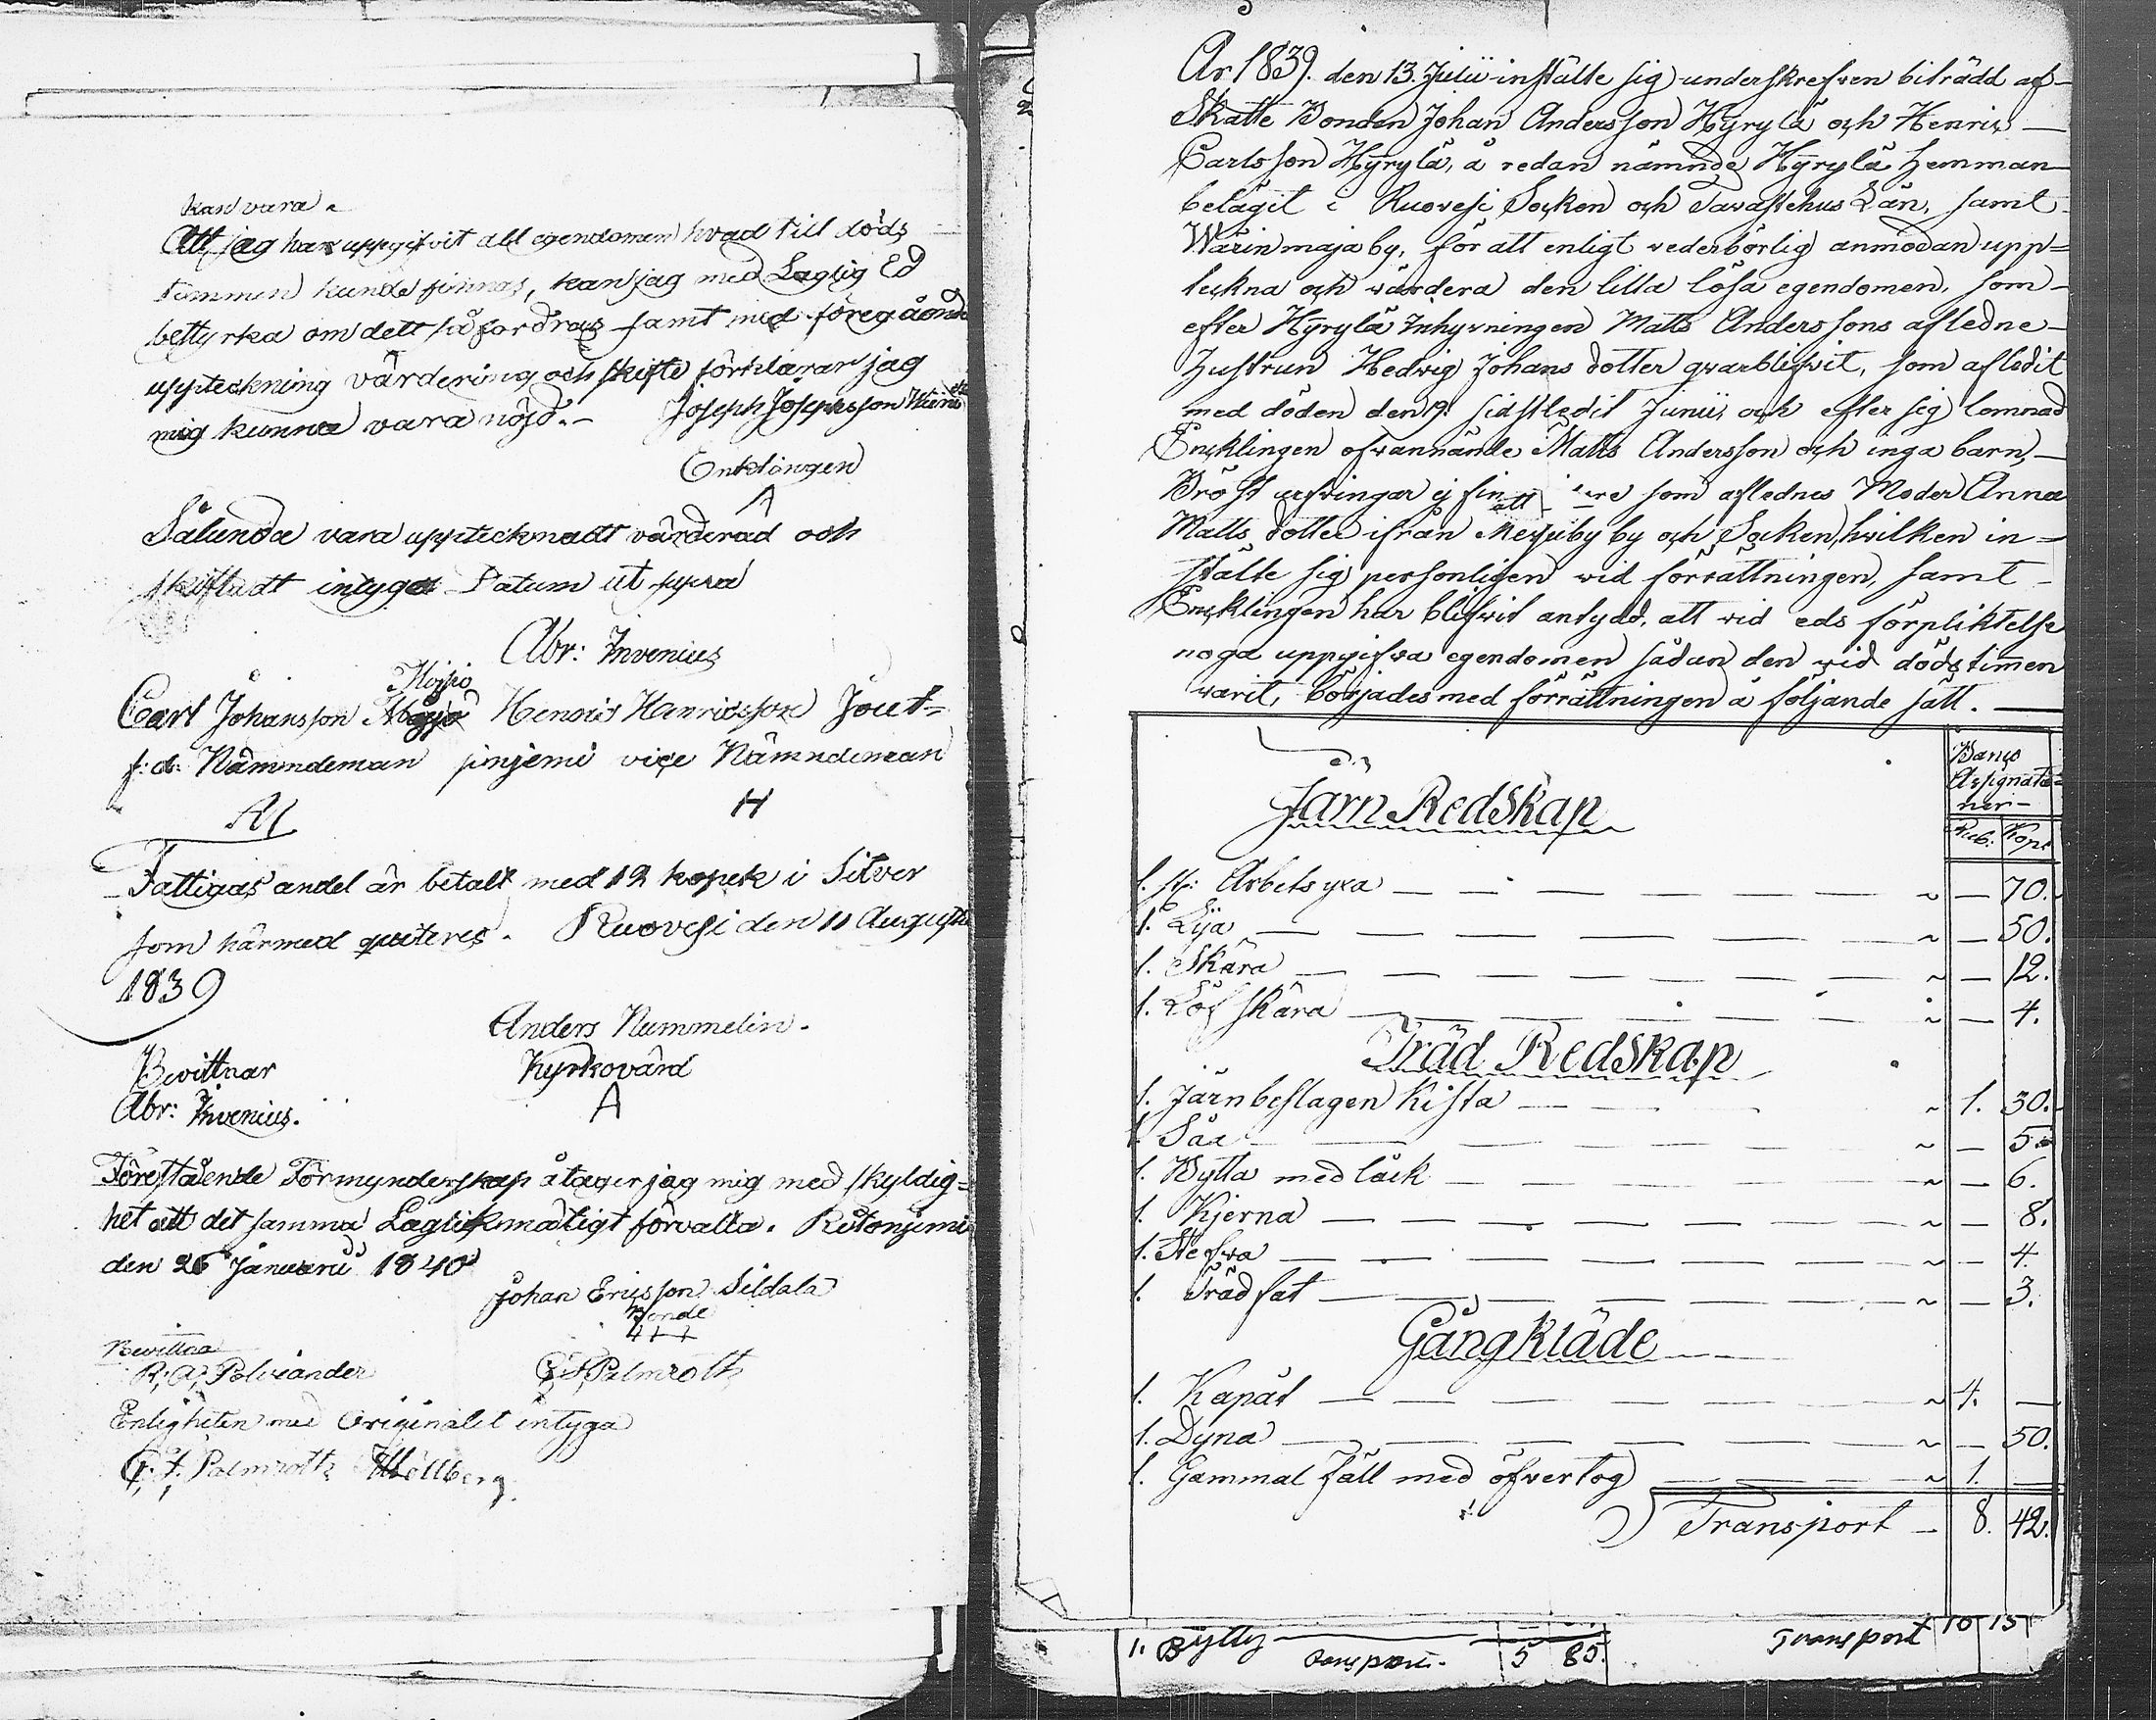 kan vara.
Att jag har uppgifvit all egendomen hvad till döds
timmen kunde finnas, kan jag med Laglig Ed
bestyrka om dett så fordras samt med föregående
uppteckning värdering och skifte förklarar jag
mig kunna vara nöjd. - Joseph Josepsson
Enklingen
A
Sålunda vara upptecknadt värderad och
skiftadt intyga Datum ut supra
Abr: Invenius
Carl Johansson Henric Henricsson Jout-
f: d: Nämndeman jenjemi vice Nämndeman
H
Fattigas andel är betalt med 12 kopek i Silver
som härmed quiteres. Ruovesi den 11 Augusti
1839
Anders Nummelin.
Bevittnar Kyrkovärd
Abr: Invenius. A
Förestående Förmynderskap åtager jag mig med skyldig=
het att det samma Lagliksmätigt förvalta. Ritonjemi
den 26 Januarii 1840
Johan Ericsson Sildala
Bonde
Bevittna
R. A. Polviander Palmroth
Enligheten med Originalet intyga
Palmroth Hellberg.
År 1839. den 13. Julii instälte sig underskrefven biträdd af
Skatte Bonden Johan Andersson Hyrylä och Henric
Carlsson Hyrylä, å redan nämnde Hyrylä hemman
belägit i Ruovesi Socken och Tavastehus Län, samt
Wärinmaja by, för att enligt vederbörlig anmodan upp=
teckna och värdera den lilla lösa egendomen, som
efter Hyrylä Inhysningen Matts Anderssons afledne
Hustrun Hedvig Johans dotter qvarblifvit, som aflidit
med döden den 19 sidstledit Junii, och efter sig lemnad
Encklingen ofvannände Matts Andersson och inga barn,
Bröst arfvingar ej som aflednes Moder Anna
Matts dotter ifrån Messuby by och Socken, hvilken in=
stälte sig personligen vid förrättningen, samt
Encklingen har blifvit antydd, att vid eds förpliktelse
noga uppgifva egendomen sådan den vid dödstimen
varit, börjades med förrättningen å följande sätt.
Banco
Assignatio=
ner
Rub: Kop:
Järn Redskap
1. st: Arbets yxa ~ — 70.
1. Lya ~ — 50.
1. Skära ~ — 12.
1. Löf skära ~ — 4.
Träd Redskap
1. Järnbeslagen Kista ~ 1. 30.
1. Såa ~ — 5
1. Bytta med låck ~ — 6.
1. Kjerna ~ — 8.
1. Stefva ~ — 4.
1. Trädfat ~ — 3.
Gångkläde
1. Kapåt ~ 4. —
1. Dyna ~ — 50.
1. Gammal fäll med öfvertog ~ 1. —
Transport — 8. 42.
1. Bytty
Transport. 5 85.
Transport 10 15